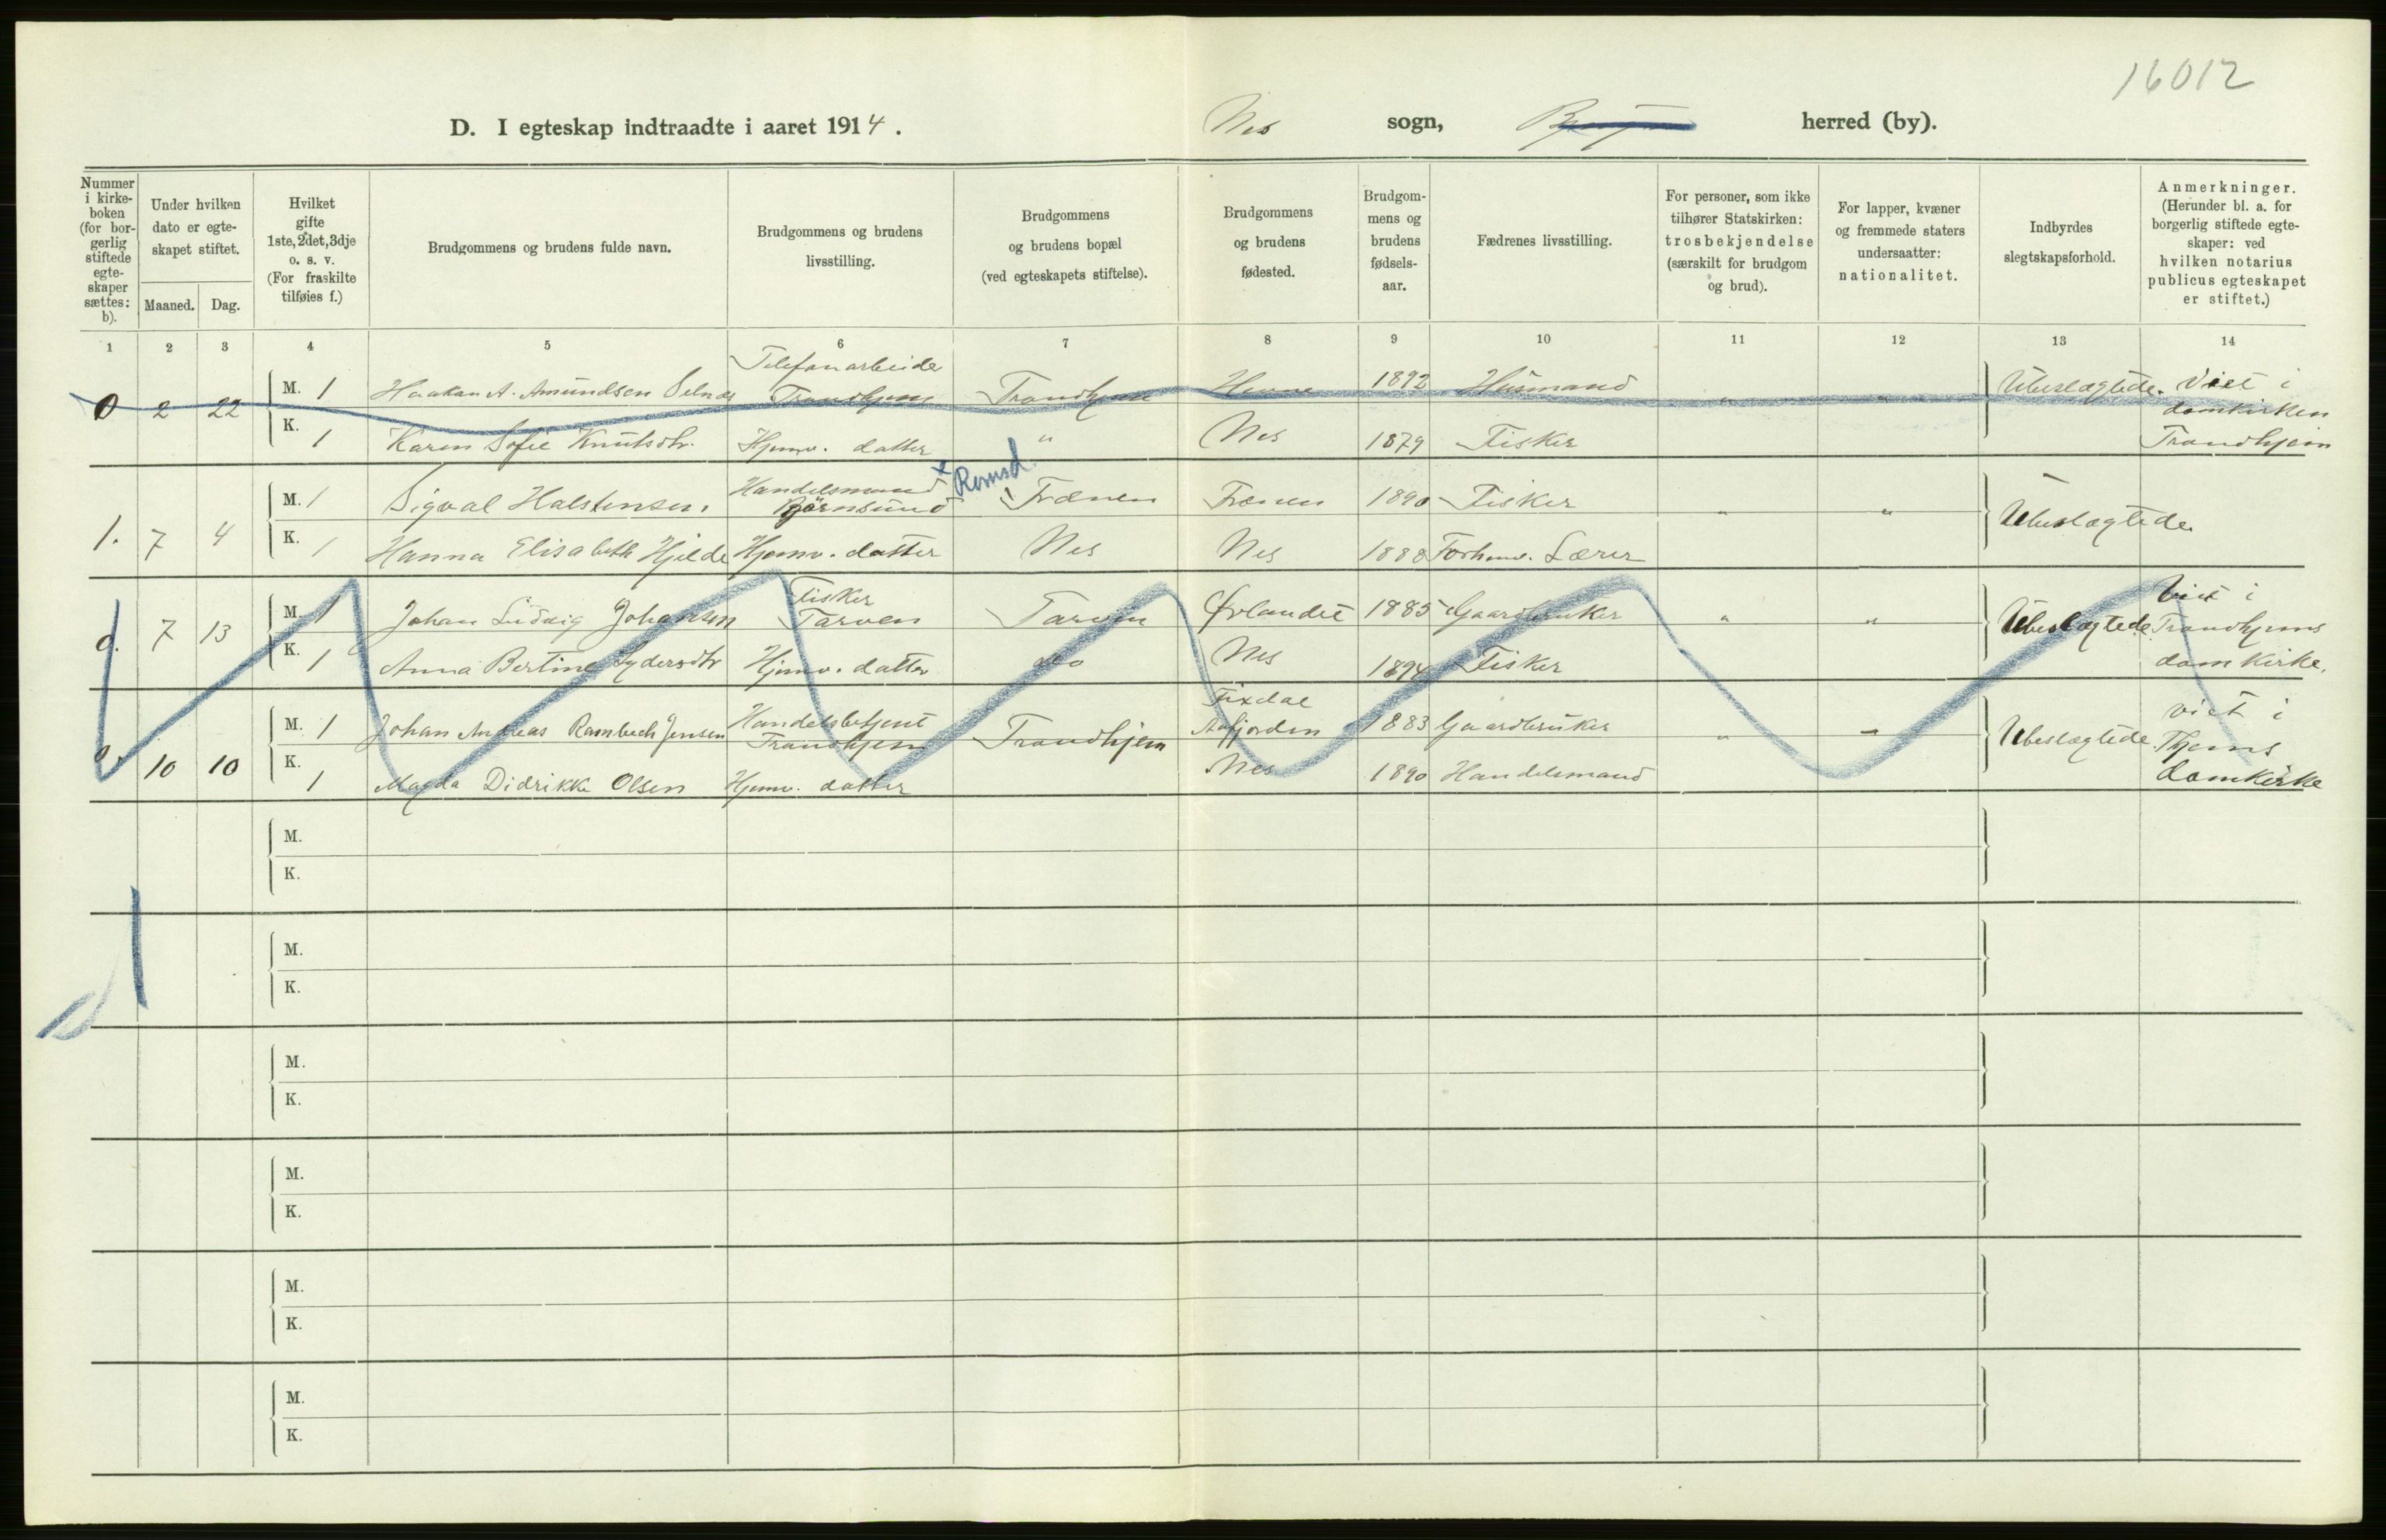 16012
D. I egteskap indtraadte i aaret 1914. Nes sogn, herred (by).
Nummer i kirkeboken (for borgerlig stiftede egteskaper sættes: b).
Under hvilken dato er egteskapet stiftet.
Maaned. Dag.
Hvilket gifte 1ste, 2det, 3dje o. s. v. (For fraskilte tilføies f.)
Brudgommens og brudens fulde navn.
Brudgommens og brudens livsstilling.
Brudgommens og brudens bopæl (ved egteskapets stiftelse).
Brudgommens og brudens fødested.
Brudgommens og brudens fødselsaar.
Fædrenes livsstilling.
For personer, som ikke tilhører Statskirken: trosbekjendelse (særskilt for brudgom og brud).
For lapper, kvæner og fremmede staters undersaatter: nationalitet.
Indbyrdes slegtskapsforhold.
Anmerkninger. (Herunder bl. a. for borgerlig stiftede egteskaper: ved hvilken notarius publicus egteskapet er stiftet.)
1 2 3 4 5 6 7 8 9 10 11 12 13 14
0 2 22 M. 1 Haakan A. Amundsen Selnes Telefonarbeide Trondhjem Trondhjem Hevne 1892 Husmand " " Ubeslægtede. Viet i domkirken Trondhjem
K. 1 Karen Sofie Knutsdtr. Hjemv. datter " Nes 1879 Fisker
1. 7 4 M. 1 Sigval Halstensen. Handelsmand Bjørnsund x Romsd. Frænen Frænen 1890 Fisker " " Ubeslægtede.
K. 1 Hanna Elisabeth Hjelde Hjemv. datter Nes Nes 1888 Forhenv. Lærer
0. 7 13 M. 1 Johan Ludvig Johansen Fisker Tarven Tarven Ørlandet 1885 Gaardbruker " " Ubeslægtede. Viet i Trondhjems domkirke.
K. 1 Anna Bertine Lydersdtr Hjemv. datter do Nes 1894 Fisker
0. 10 10 M. 1 Johan Andreas Rambech Jensen Handelsbetjent Trondhjem Trondhjem Fixdal Aafjorden 1883 Gaardbruker " " Ubeslægtede. Viet i Thjems domkirke
K. 1 Magda Didrikke Olsen Hjemv. datter Nes 1890 Handelsmand
M.
K.
M.
K.
M.
K.
M.
K.
M.
K.
M.
K.